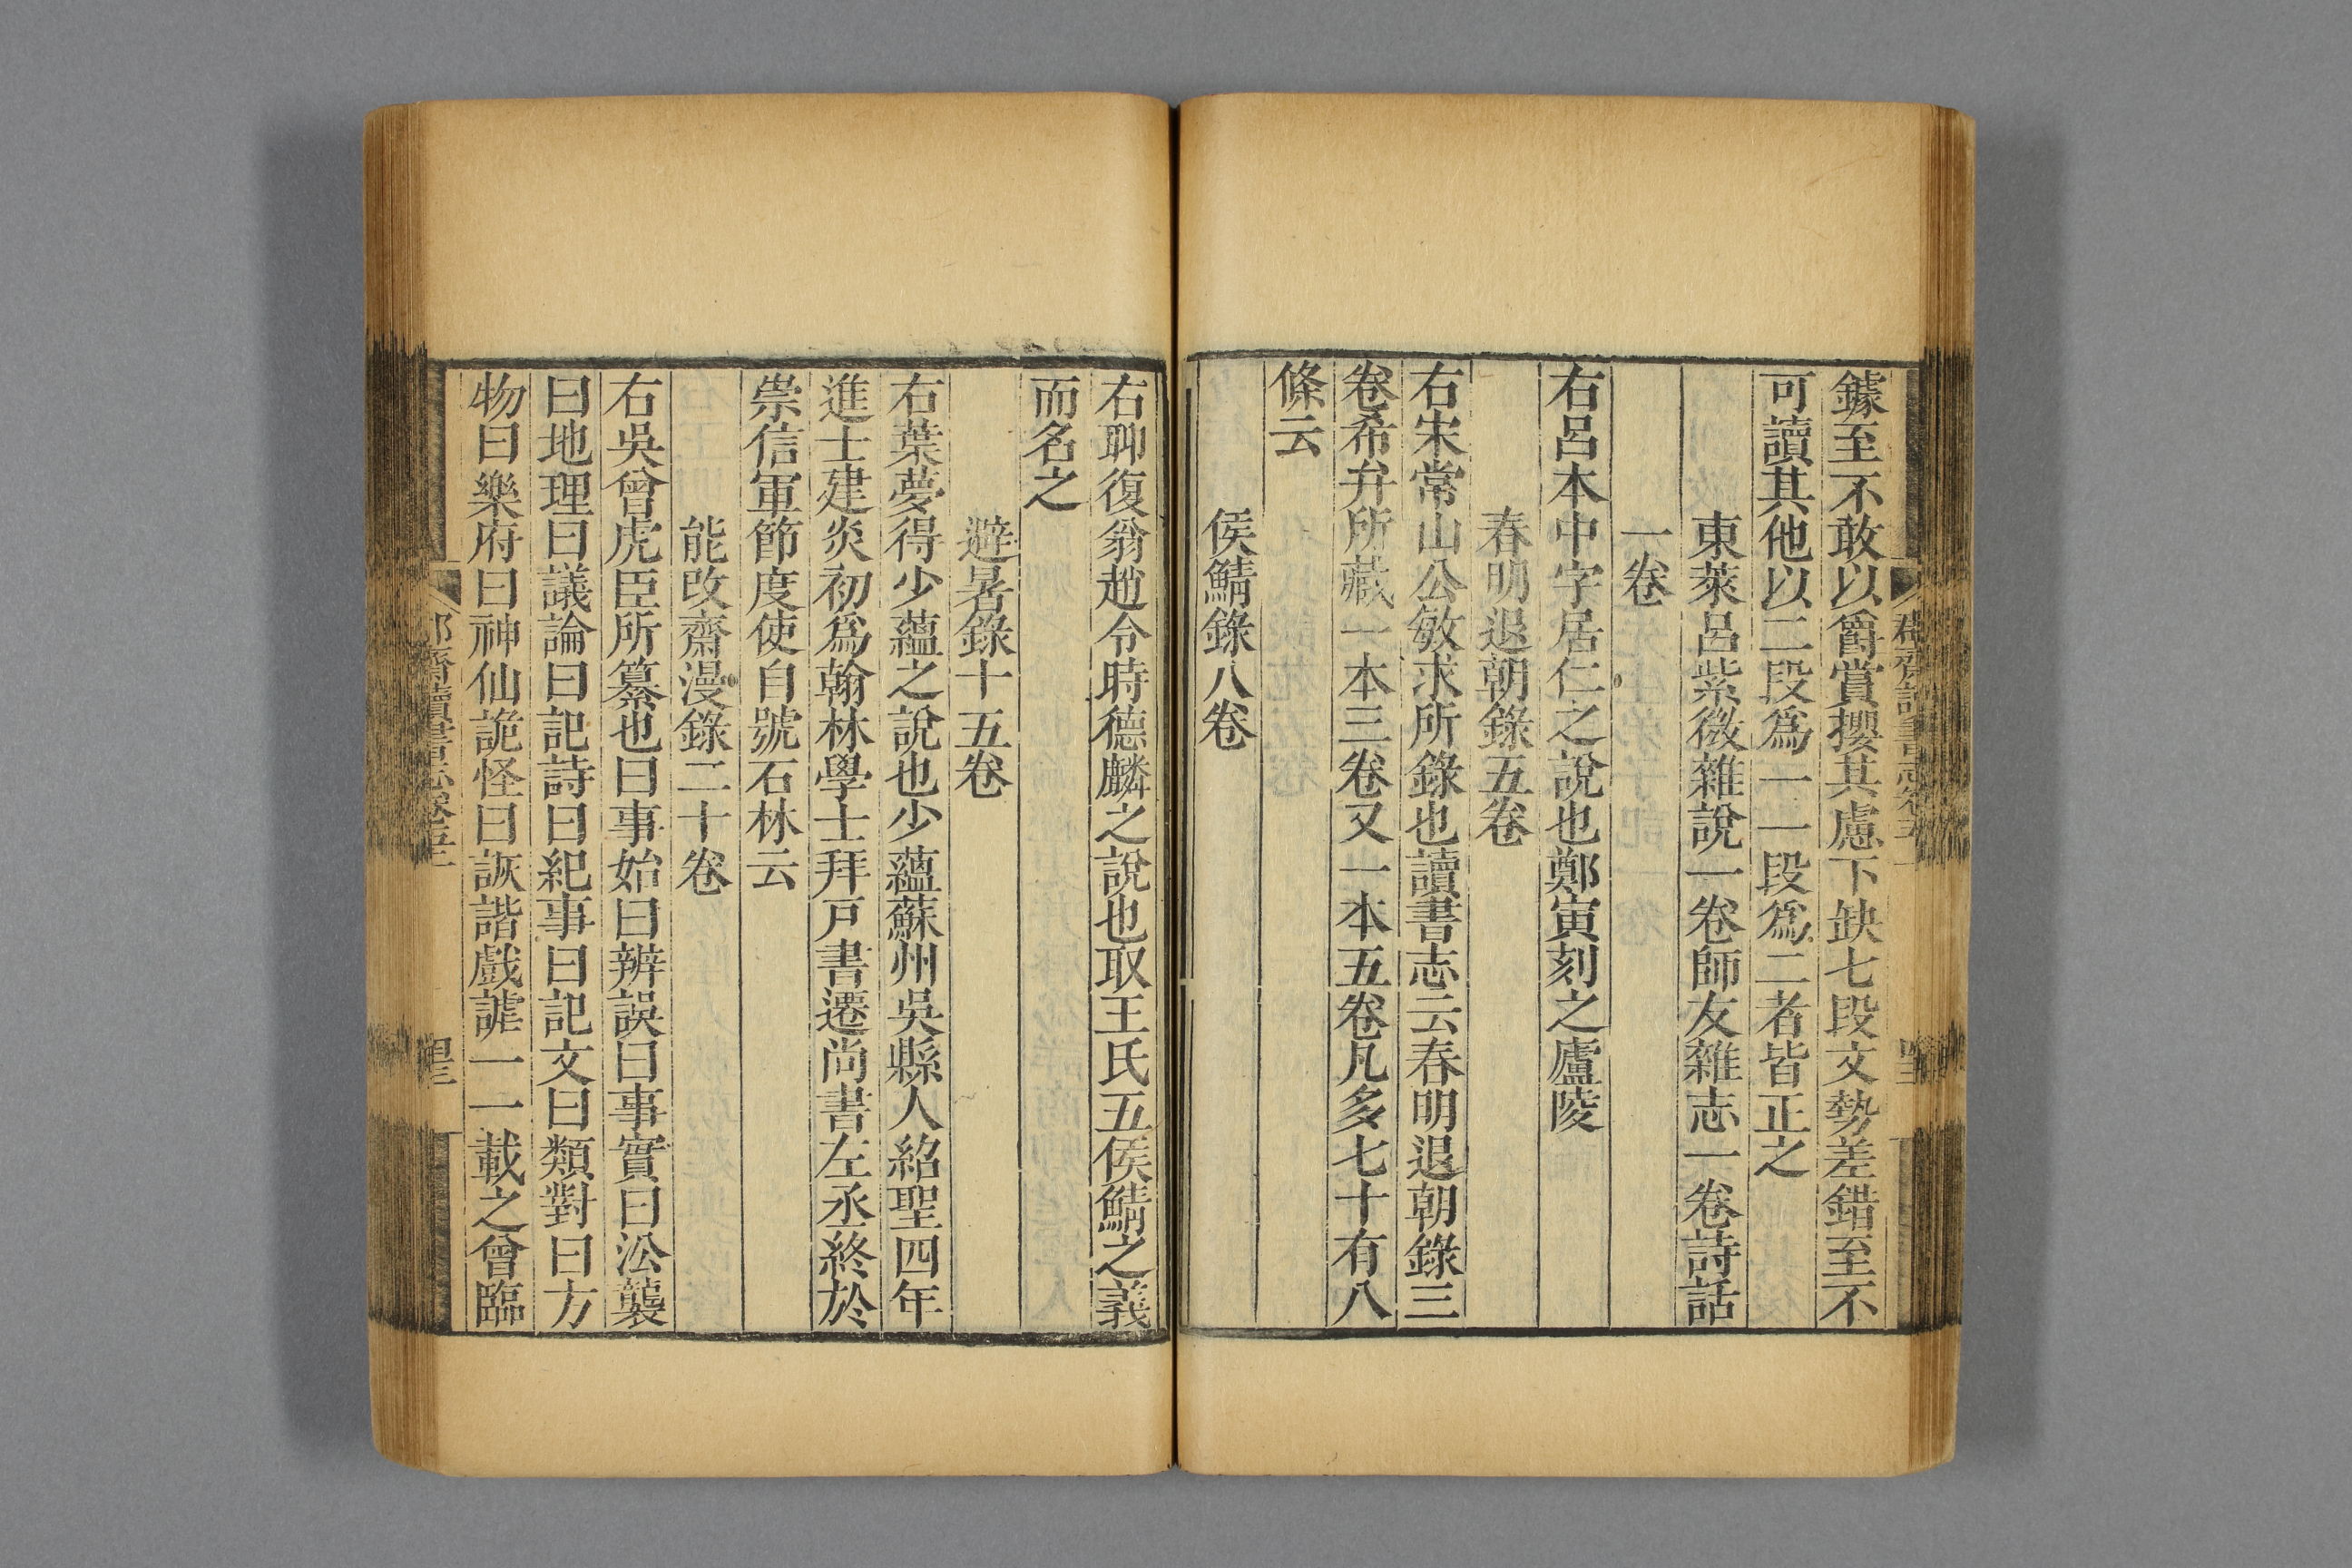 鐻至不敢以爵賞攖其慮下缺七段文勢差錯至不
可讀其他以二段爲一一段爲二者皆正之
東萊呂紫微雜說一卷師友雜志一卷詩話
一卷
右呂本中字居仁之說也鄭寅刻之廬陵
春明退朝錄五卷
右宋常山公敏求所錄也讀書志云春明退朝錄三
卷希弁所藏一本三卷又一本五卷凡多七十有八
條云
侯鯖錄八卷
右聊復翁趙令時德麟之說也取王氏五侯鯖之義
而名之
避暑錄十五卷
右葉夢得少蘊之說也少蘊蘇州吳縣人紹聖四年
進士建炎初爲翰林學士拜戶書遷尚書左丞終於
崇信軍節度使自號石林云
能改齋漫錄二十卷
右吳曾虎臣所纂也曰事始曰辨誤曰事實曰㳂襲
曰地理曰議論曰記詩曰紀事曰記文曰類對曰方
物曰樂府曰神仙詭怪曰詼諧戲謔一一載之曾臨
齋讀書志卷五